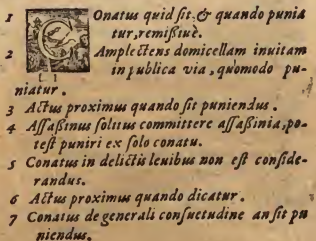 1 Conatus quid sit. & quando punia
tur, remissiuè.
2 Amplectens domicellam inuitam
in publica via, quomodo pu-
niatur.
3 Actus proximus quando sit puniendus.
4 Assassinus solitus committere assassinia, po-
test puniri ex solo conatu.
5 Conatus in delictis leuibus non est conside-
randus.
6 Actus proximus quando dicatur.
7 Conatus de generali consuetudine an sit pu
niendus.